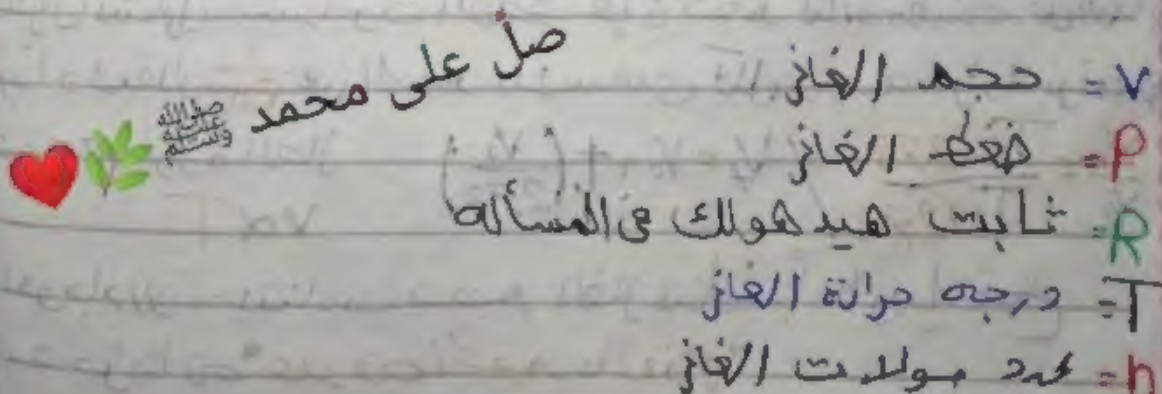 صلِّ على محمد ﷺ
V= حجم الغاز
P= ضغط الغاز
R= ثابت هيدهولك في المسألة
T= درجة حرارة الغاز
n= عدد مولات الغاز